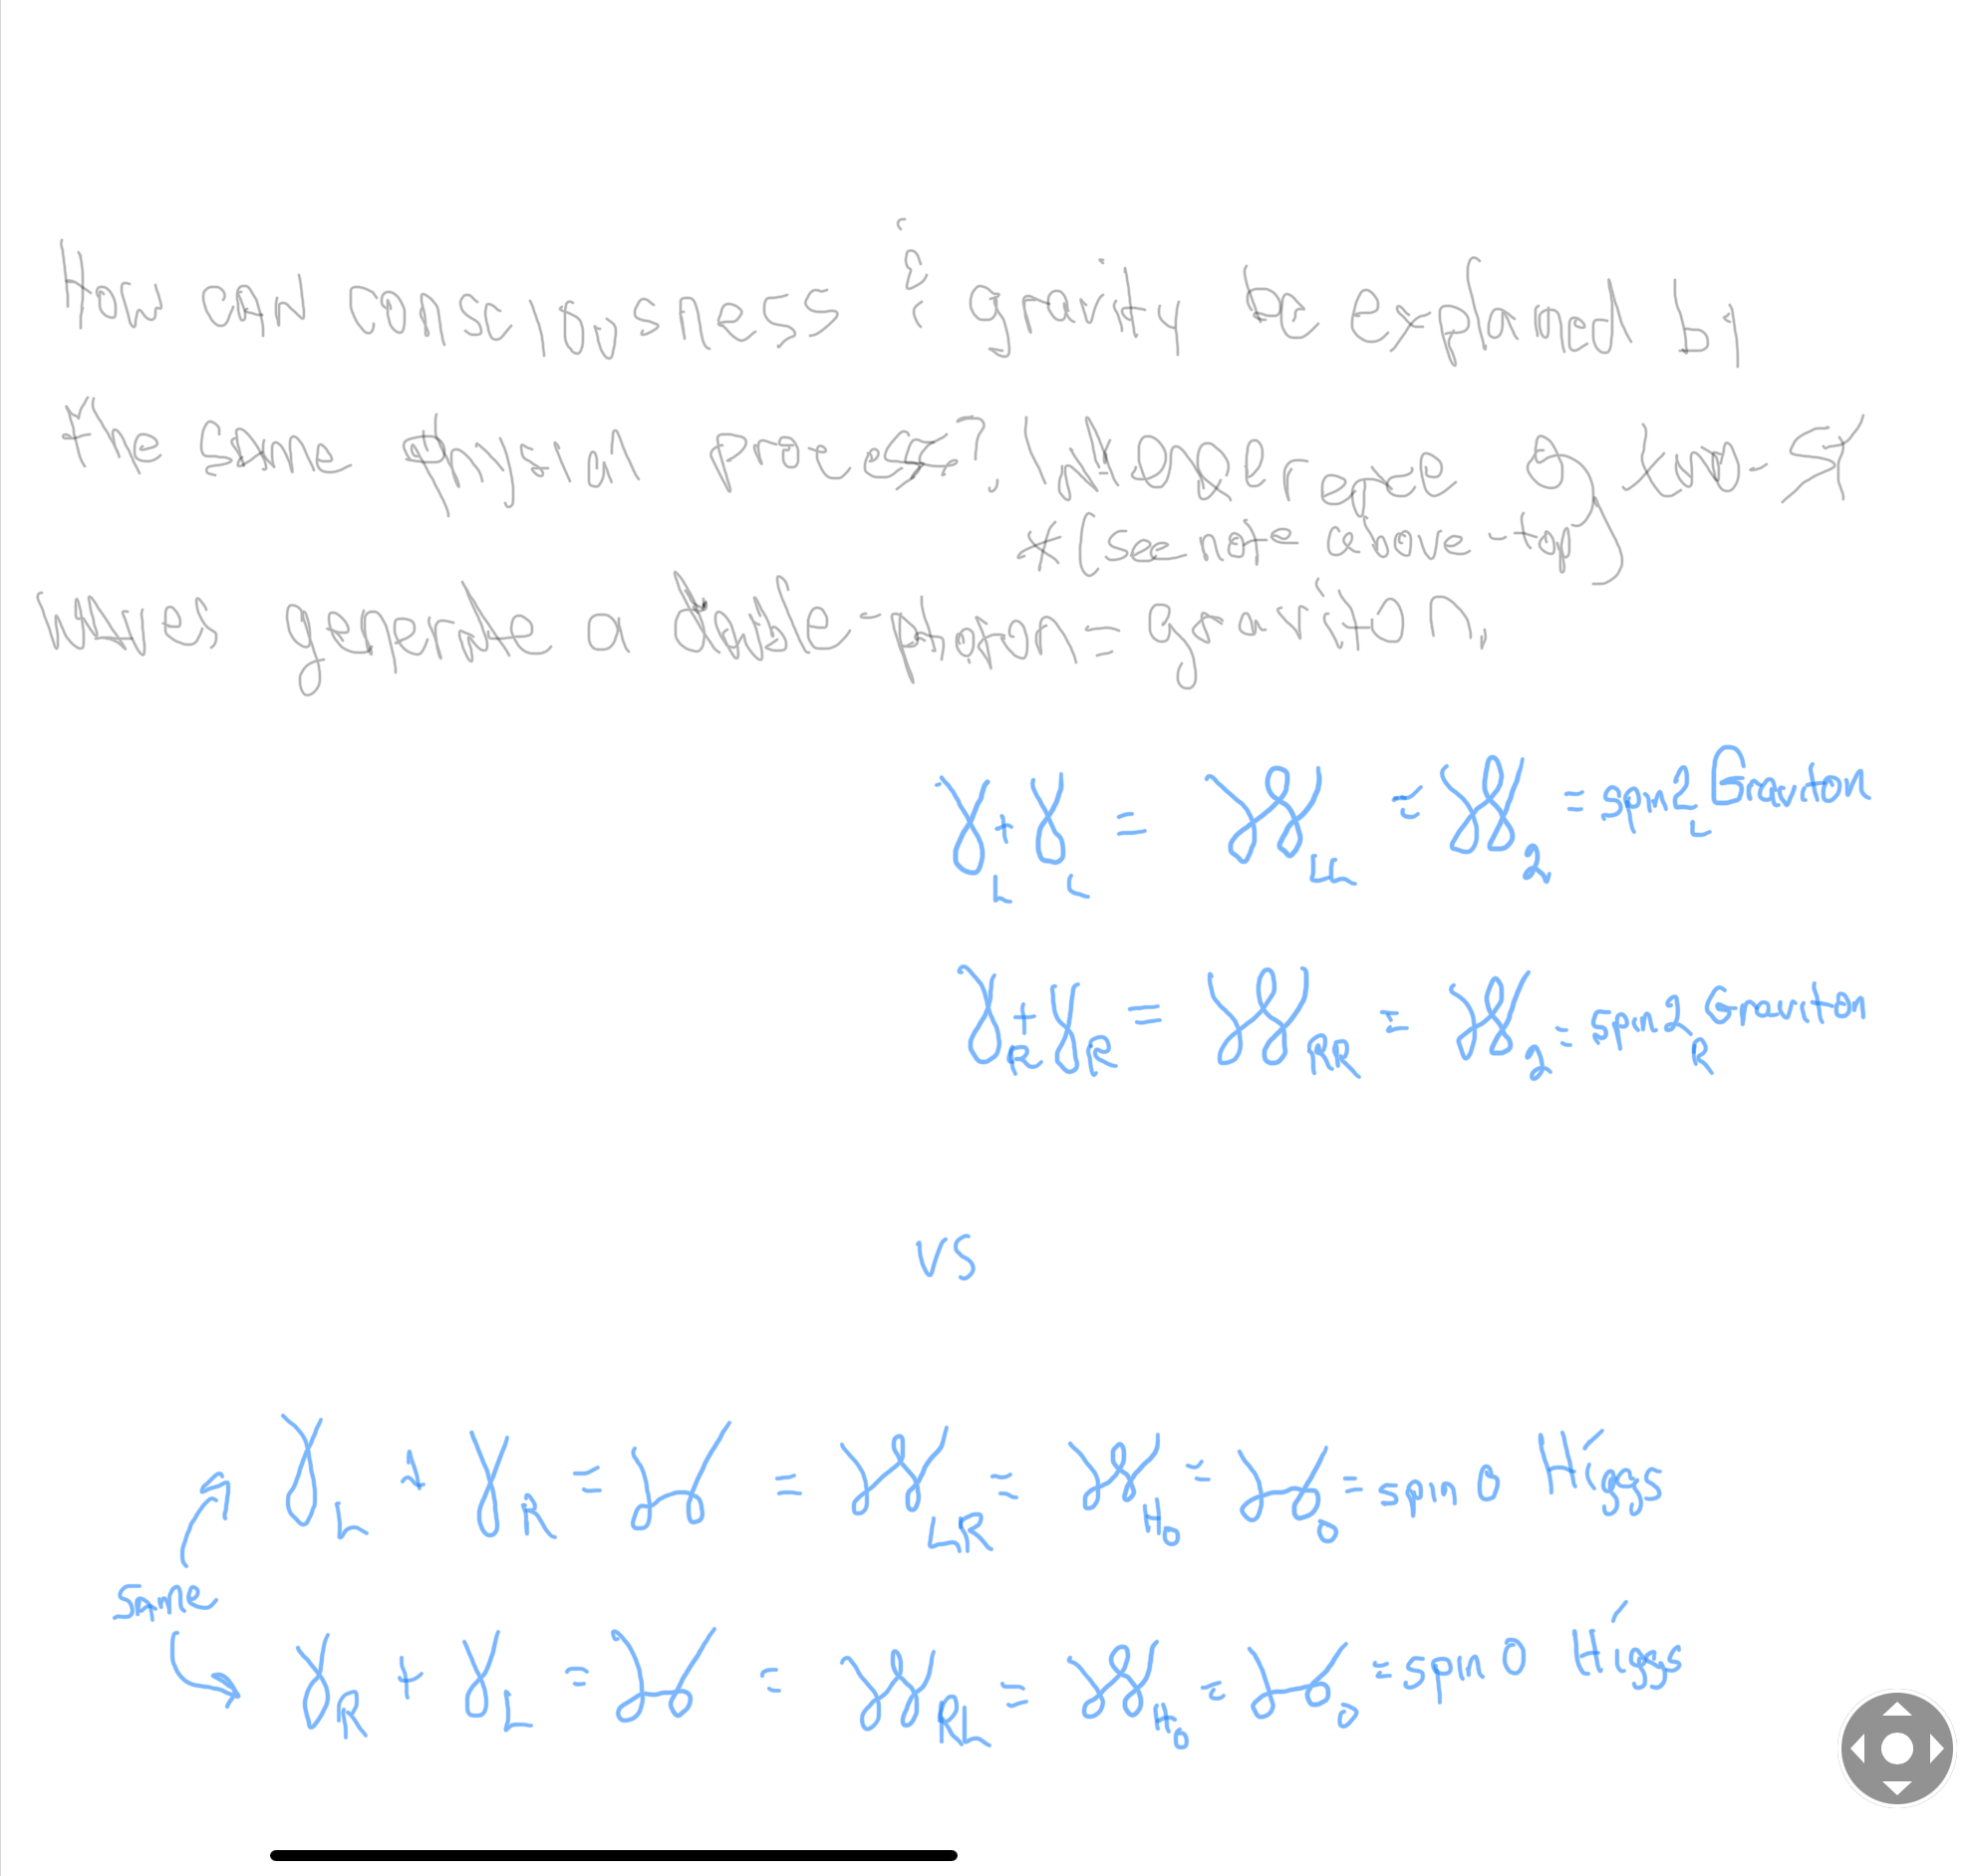 How can consciousness & gravity be explained by
the same physical process? When one
*(see note above-top)
waves generate a double-photon = graviton.
γL + γL = γγLL = γγ2 = spin 2L Graviton
γR + γR = γγRR = γγ2 = spin 2R Graviton
vs
γL + γR = γγ = γγLR = γγH0 = γγ0 = spin 0 Higgs
same
γR + γL = γγ = γγRL = γγH0 = γγ0 = spin 0 Higgs